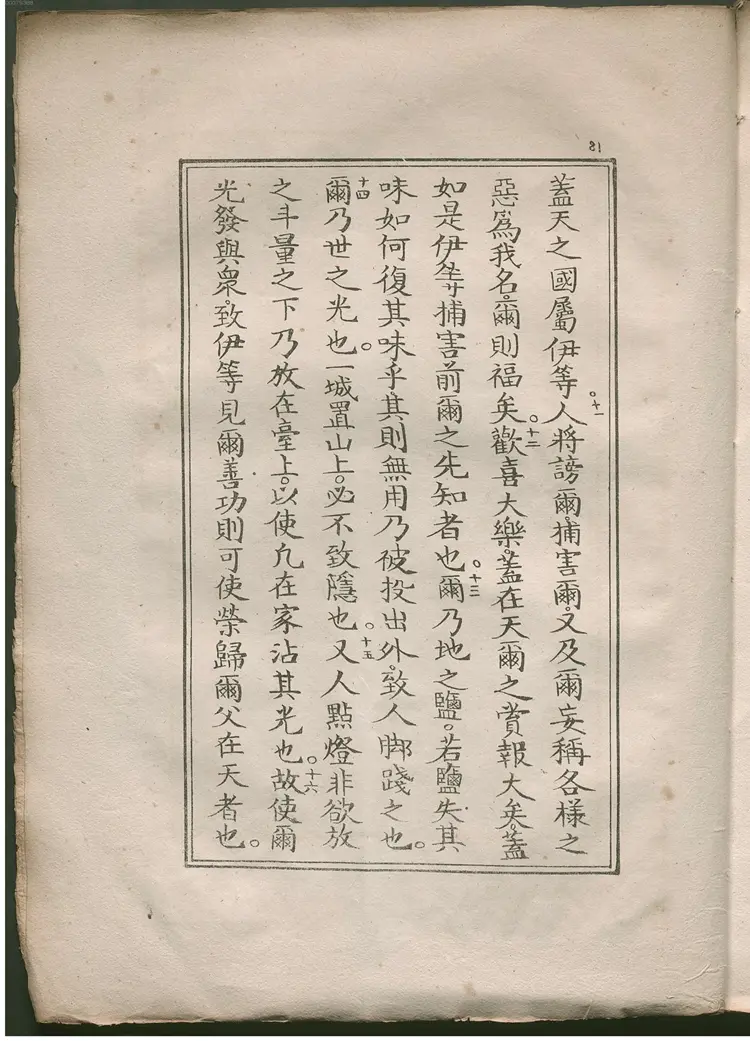 18
蓋天之國屬伊等。十一人將謗爾。捕害爾。又及爾妄稱各樣之
惡爲我名。爾則福矣。十二歡喜大樂。蓋在天爾之賞報大矣。蓋
如是伊等捕害前爾之先知者也。十三爾乃地之鹽。若鹽失其
味如何復其味乎其則無用乃被投出外。致人脚踐之也。
十四爾乃世之光也。一城置山上。必不致隱也。十五又人點燈非欲放
之斗量之下乃放在臺上。以使凡在家沾其光也。十六故使爾
光發與衆。致伊等見爾善功則可使榮歸爾父在天者也。